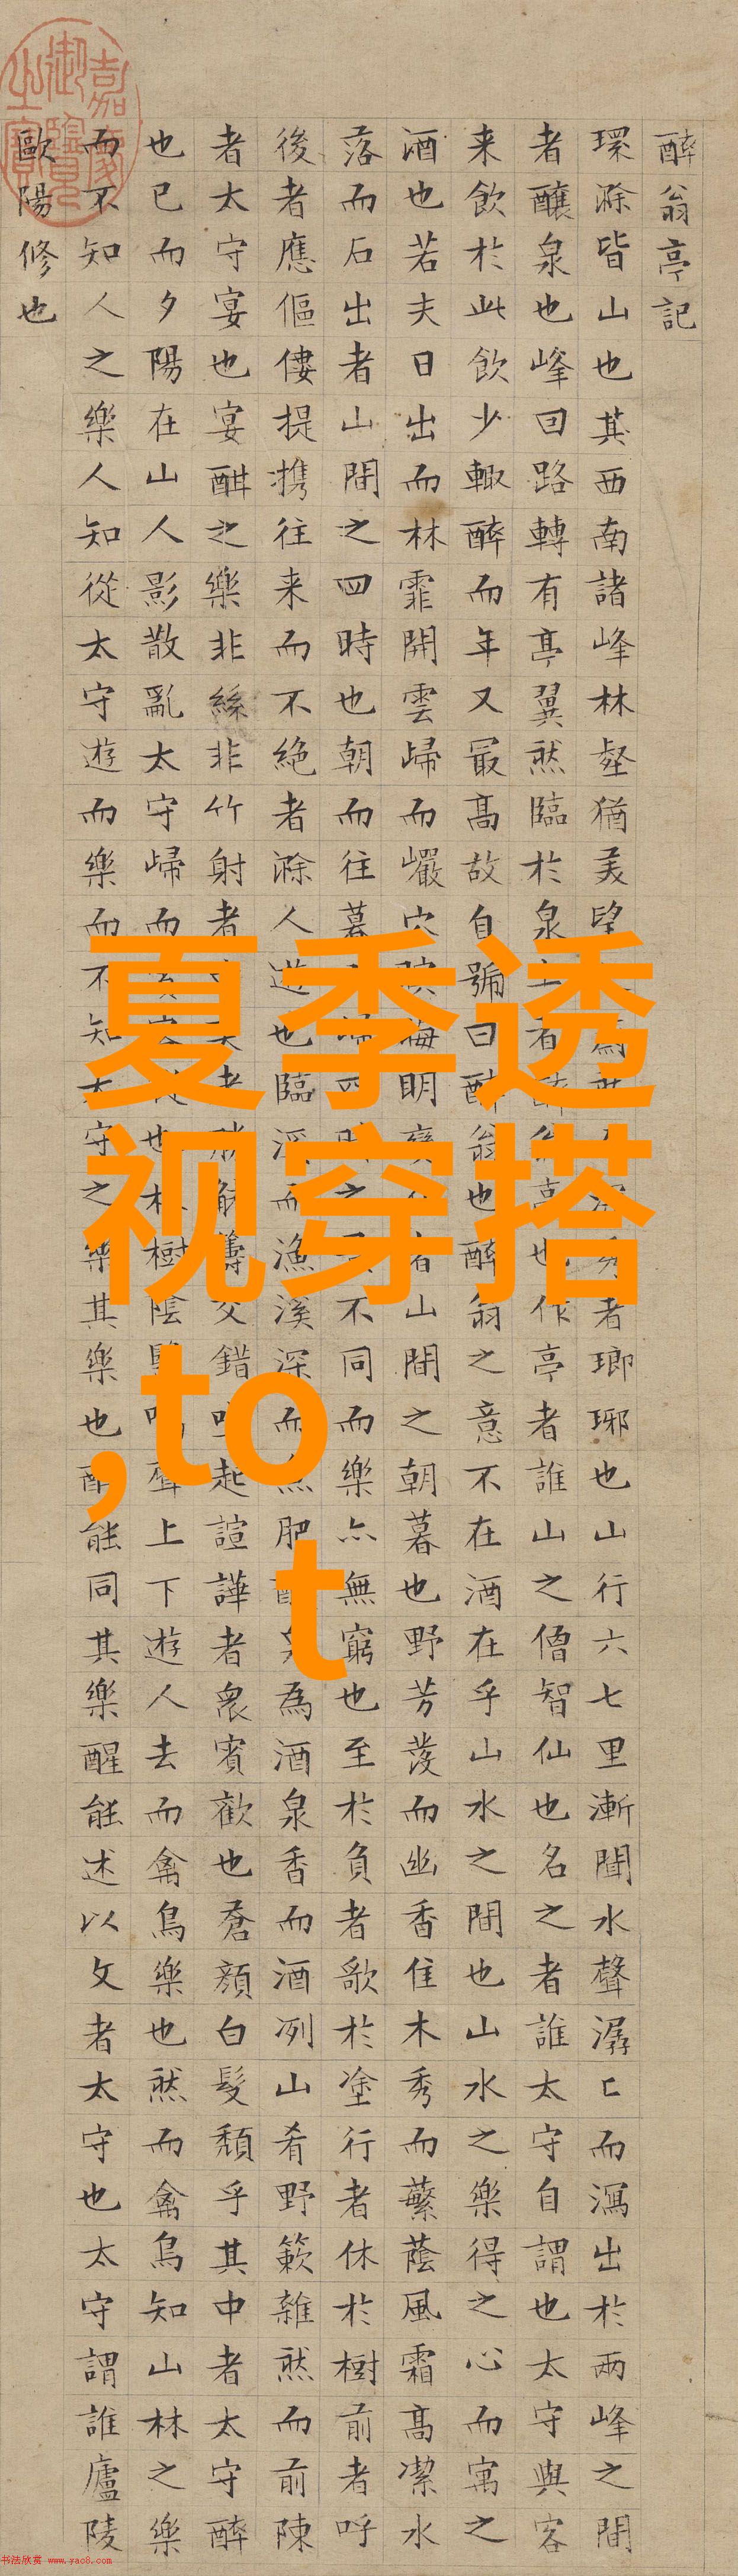 醉翁亭記
環滁皆山也其西南諸峰林壑猶美望者瑯琊也山行六七里漸聞水聲潺匕而瀉出於兩峰之間
者釀泉也峰回路轉有亭翼然臨於泉上者醉翁亭也作亭者誰山之僧智仙也名之者誰太守自謂也太守與客
来飲於此飲少輒醉而年又最高故自號曰醉翁也醉翁之意不在酒在乎山水之間也山水之樂得之心而寓之
酒也若夫日出而林霏開雲歸而巖穴暝晦明變者山間之朝暮也野芳發而幽香佳木秀而蘩蔭風霜高潔水
落而石出者山間之四時也朝而往暮歸四時之不同而樂亦無窮也至於負者歌於塗行者休於樹前者呼
後者應傴僂提攜往来而不絕者滁人遊也臨溪而漁溪深而魚肥釀泉為酒泉香而酒冽山肴野蔌雜然而前陳
者太守宴也宴酣之樂非絲非竹射者者勝觥籌交錯坐起諠譁者衆賓歡也蒼顏白髮頹乎其中者太守醉
也已而夕陽在山人影散亂太守歸而賓從也林樹陰翳鳴聲上下遊人去而禽鳥樂也然而禽鳥知山林之樂
而不知人之樂人知從太守遊而樂而不知太守之樂其樂也醉能同其樂醒能述以文者太守也太守謂誰廬陵
歐陽修也
嘉慶御覽之寶
夏季透
视穿搭
,to
t
书法欣赏 www.yac8.com